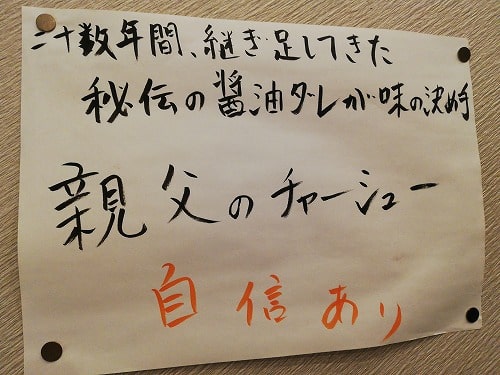 二十数年間、継ぎ足してきた
秘伝の醤油ダレが味の決め手
親父のチャーシュー
自信あり